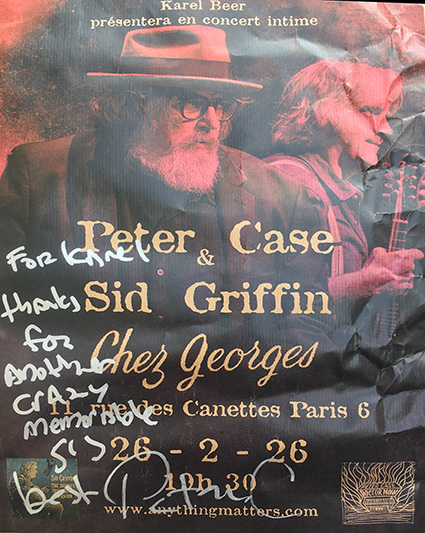 Karel Beer
présentera en concert intime
Peter Case
&
Sid Griffin
Chez Georges
11 rue des Canettes Paris 6
26 - 2 - 26
19h 30
www.anythingmatters.com
For Karel
thanks
for
Another
crazy
memorable
Sid
best
Sid Griffin